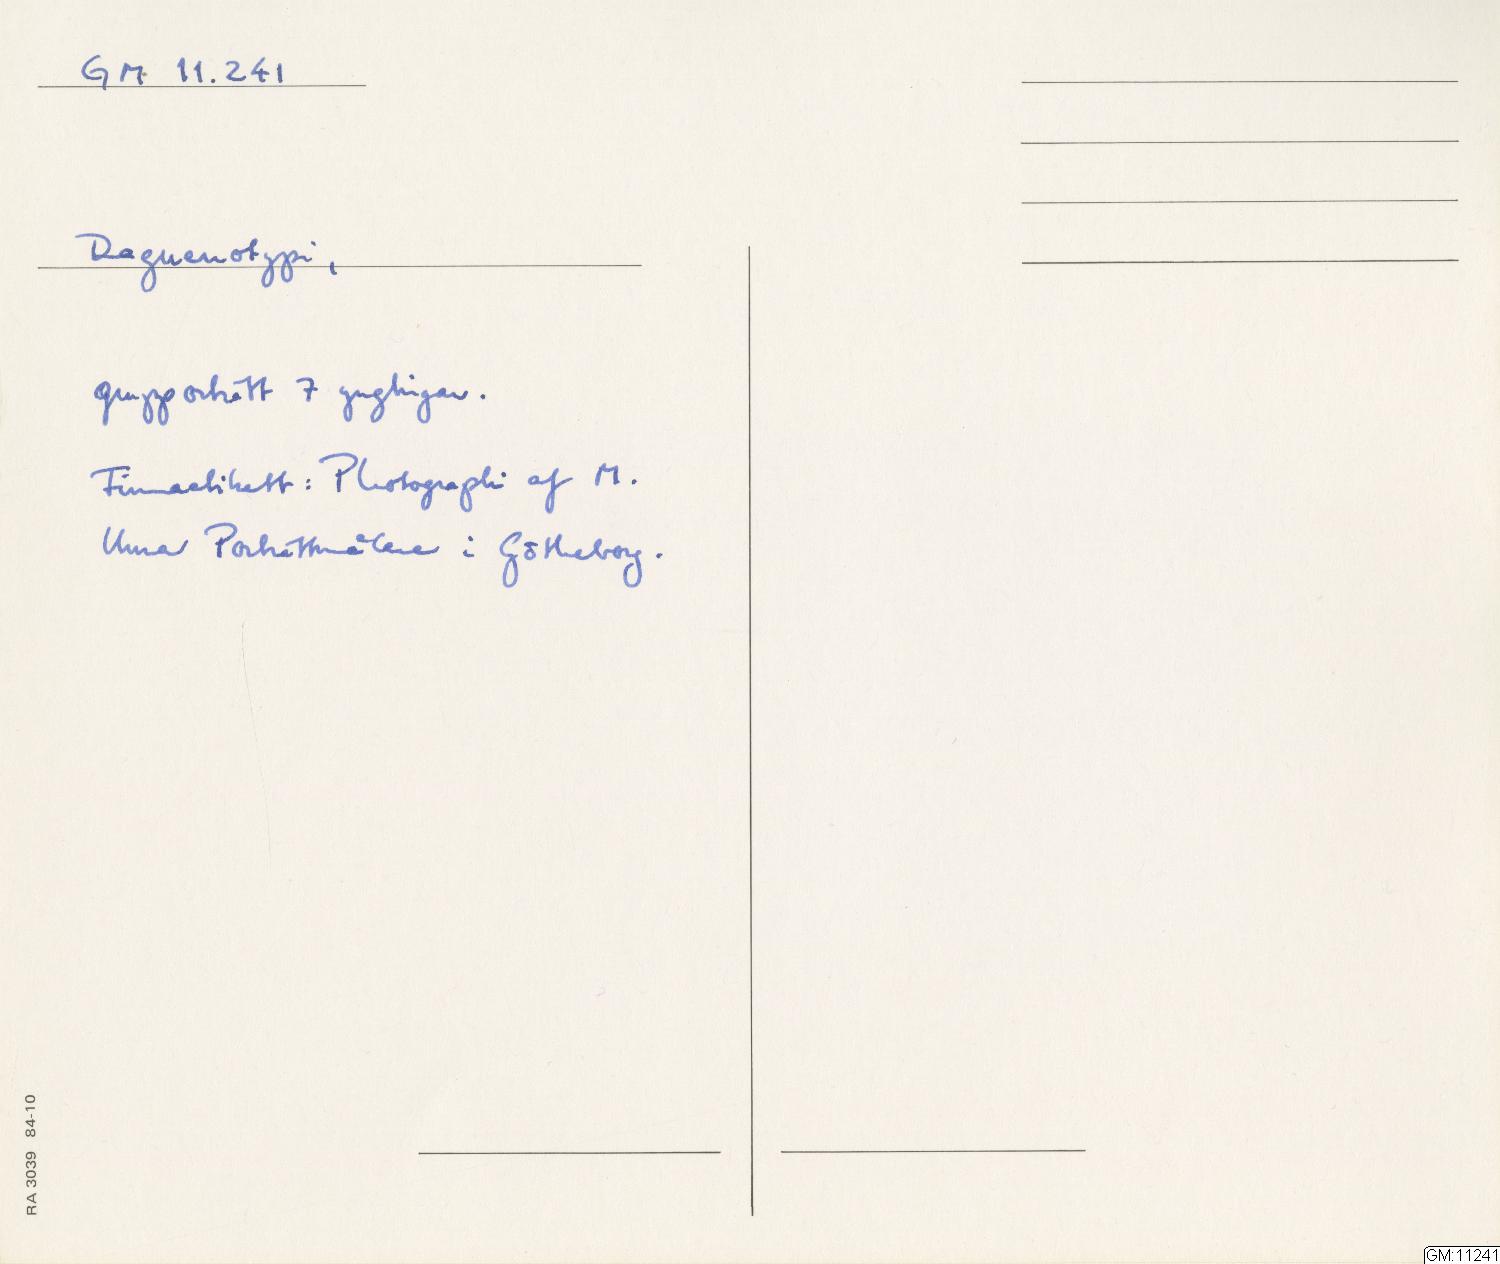 GM 11.241
Daguerrotypi,
grupporträtt 7 ynglingar.
Firmaetikett: Photographi af M.
Unna Porträttmålare i Götheborg.
RA 3039 84-10
GM:11241